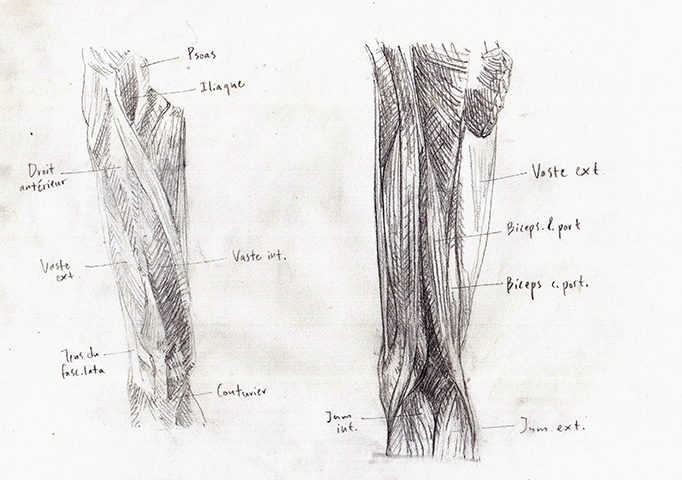 Psoas
Iliaque
Droit
antérieur
Vaste
ext
Vaste int.
Tens. du
fasc. lata
Couturier
Vaste ext.
Biceps. l. port
Biceps c. port.
Jum
int.
Jum. ext.